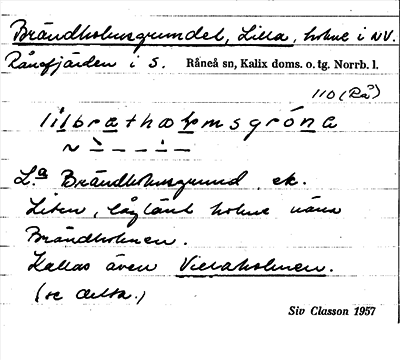 Brändholmsgrundet, Lilla, holme i NV.
Rånefjärden i S. Råneå sn, Kalix doms. o. tg. Norrb. l.
110 (Rå)
lịlbrathoḷmsgróṇa
~ – – – –
L:a Brändholmsgrund ek.
Liten, låglänt holme nära
Brändholmen.
Kallas även Villaholmen.
(se detta.)
Siv Classon 1957